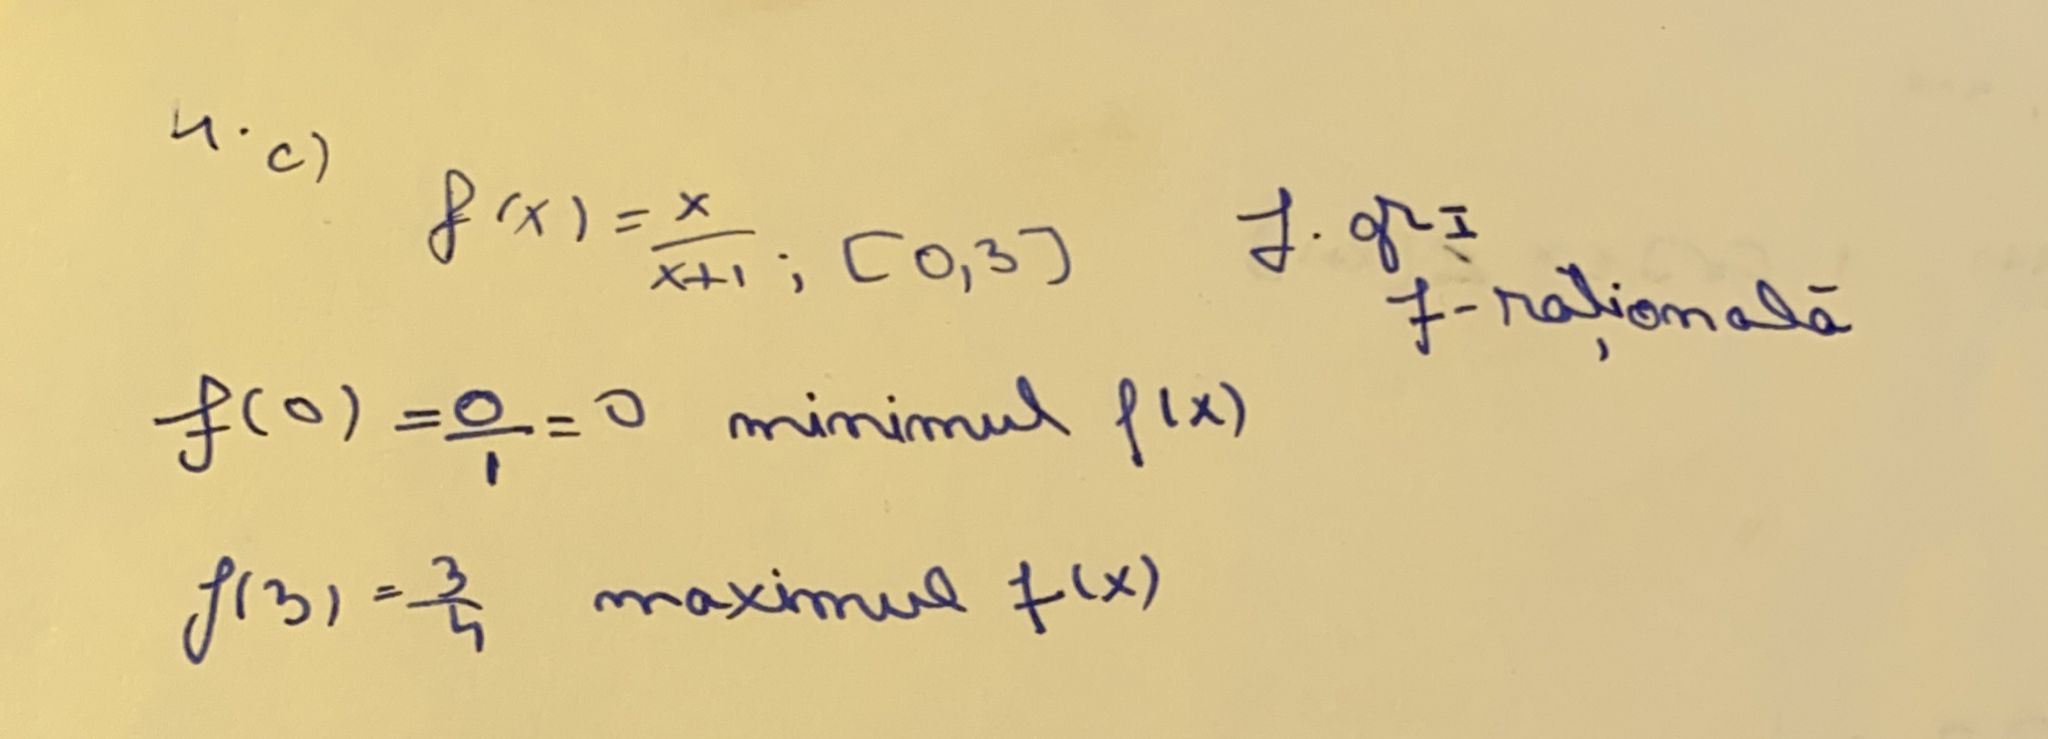 4. c)
f(x) = x/(x+1) ; [0,3] f. gr I
f-rațională
f(0) = 0/1 = 0 minimul f(x)
f(3) = 3/4 maximul f(x)